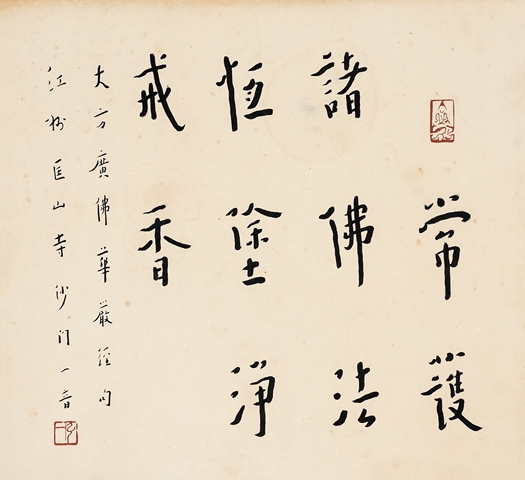 常護
諸佛法
恆塗淨
戒香
大方廣佛華嚴經句
江州匡山寺沙門一音